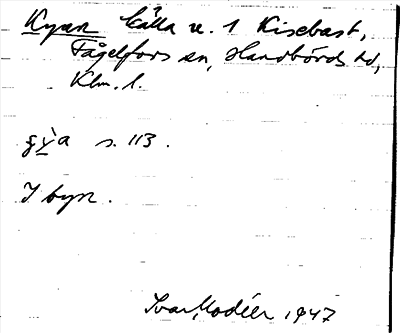 Kyan källa u. 1 Kisebast,
Fågelfors sn, Handbörds hd,
Klm. l.
s. 113.
I byn.
Ivar Modéer 1947